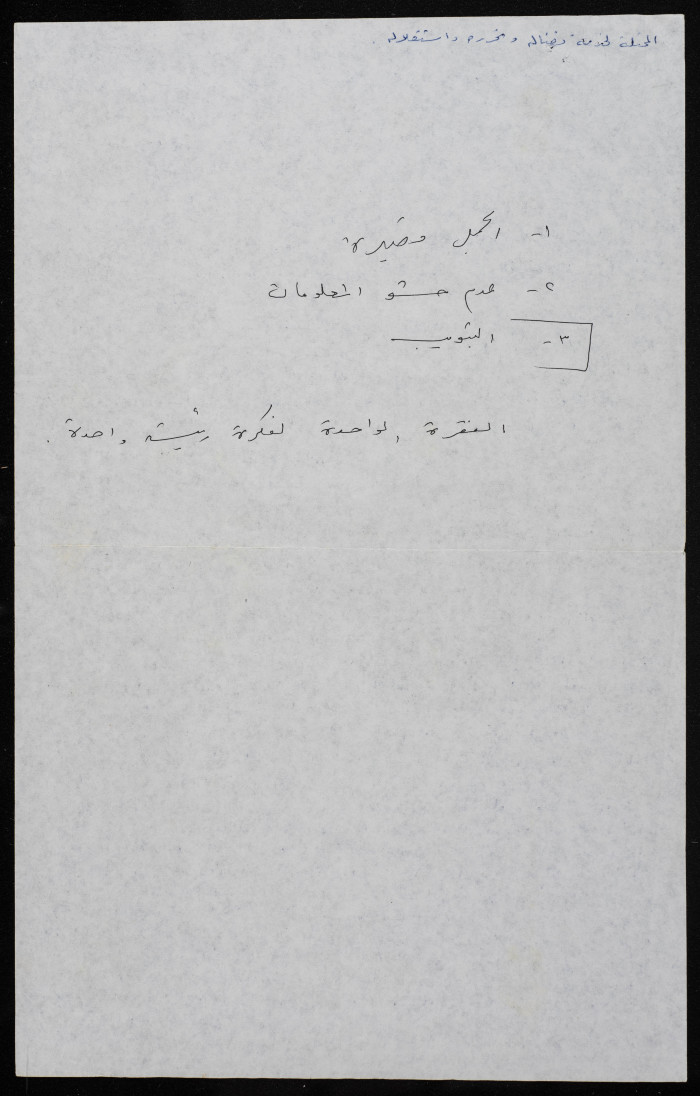 المحتلة لخدمة نضاله وتحرره واستقلاله.
١- الجمل قصيرة
٢- عدم حشو المعلومات
٣- التبويب
الفقرة الواحدة لفكرة رئيسية واحدة.